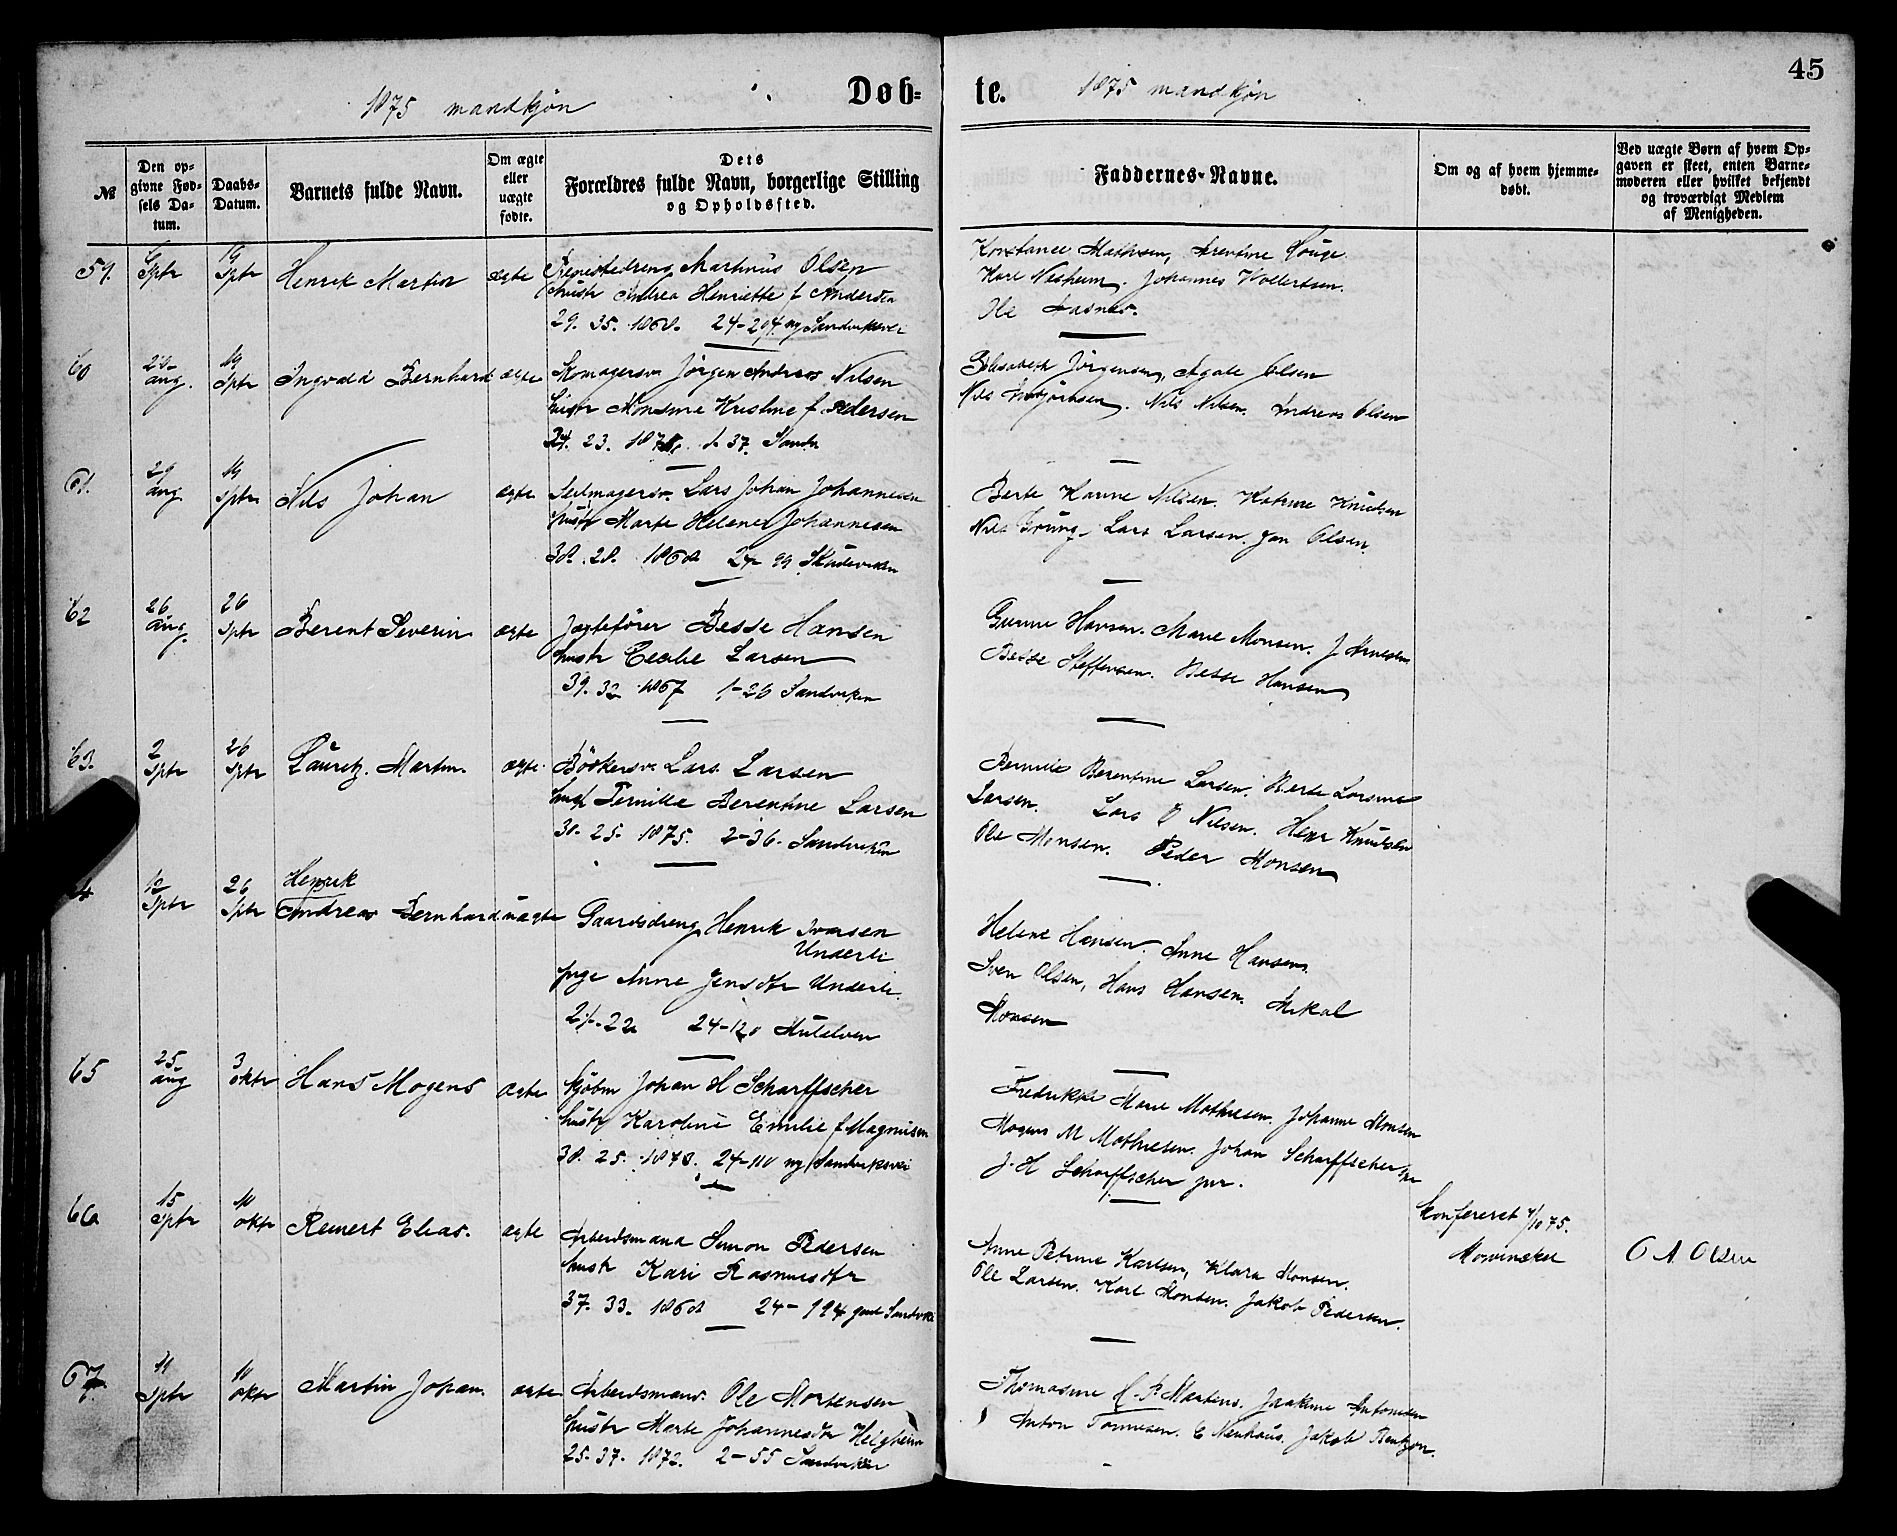 45
1875 mandkjøn Døb-
te. 1875 mandkjøn
№
Den op-
givne Fød-
sels Da-
tum.
Daabs-
Datum.
Barnets fulde Navn.
Om ægte
eller
uægte
fødte.
Dets
Forældres fulde Navn, borgerlige Stilling
og Opholdssted.
Faddernes-Navne.
Om og af hvem hjemme-
døbt.
Ved uægte Børn af hvem Op-
gaven er skeet, enten Barne-
moderen eller hvilket bekjendt
og troværdigt Medlem
af Menigheden.
59. Sptr 19 Sptr Henrik Martin ægte Martinus Olsen
hustr Andrea Henriette f Andersen
29. 35. 1868. 24-204 ny Sandviksvei
Konstance Mathisen,
Karl Nesheim. Johannes Vollertsen.
Ole
60 29 aug. 19 Sptr Ingvald Bernhard ægte Skomagersv Jörgen Andreas Nilsen
hustr Monsine Kristine f Pedersen
24. 23. 1-37. Sandv
Elisabeth Jörgensen, Agate Olsen
Nils Nilsen. Andreas Olsen
61. 29 aug 19 sptr Nils Johan ægte Seilmagersv. Lars Johan Johannesen
hustr Marte Helene Johannesen
38. 28. 1868 24-99 Skudeviken
Berte Karine Nilsen. Katrine Knudsen
Nils Grung. Lars Larsen. Jan Olsen.
62 26 aug. 26 Sptr Berent Severin ægte Jægtefören Besse Hansen
hustr Cecilie Larsen
39. 32 1867 1-26 Sandviken
Gurine Hansen. Marie Monsen. J Arnesen
Besse Steffensen. Besse Hansen
63. 2 Sptr 26 Sptr Lauritz. Martin. ægte. Bödkersv. Lars Larsen
hust Pernille Berentine Larsen
30. 25. 1875. 2-36. Sandviken
Pernille Berentine Larsen. Berte Larsine
Larsen. Lars O Nilsen. Henr Knudsen
Ole Monsen. Peder Monsen
4 12 Sptr 26 Sptr Henrik
Andreas Bernhard uægte Gaardsdreng Henrik Ivarsen
Underli
pige Anne Jensdtr Underli.
21.22 24-120 Mulelven
Helene Hansen. Anne Hansen.
Sven Olsen, Hans Hansen. Mikal
Monsen
65 25 aug 3 oktr Hans Mogens ægte Kjöbm Johan H Scharffscher
hustr Karoline Emilie f Magnusen
38. 25. 1873. 24-110 ny Sandviksvei
Fredrikke Marie Mathiesen. Johanne Monsen
Mogens M Mathiesen. Johan Scharffscher sen
J. H Scharffscher jun.
66 15 Sptr 10 oktr Reinert Elias. ægte Arbeidsmand Simon Pedersen
hustr Kari Rasmusdtr
37. 33. 1868 24-194 gml Sandvv
Anne Petrine Karlsen, Klara Monsen.
Ole Larsen. Karl Monsen. Jakob Pedersen.
Konfereret 4/10 75.
Mowinckel O A Olsen
67. 11 Sptr 10 oktr Martin Johan. ægte Arbeidsmand. Ole Mortensen
hustr Marte Johannesdtr Helgheim
25. 37. 1872. 2-55 Sandviken
Thomasine C. P. Martens. Joakime Antonisen
Anton Tönnesen. C Neuhaus. Jakob Bentzon.